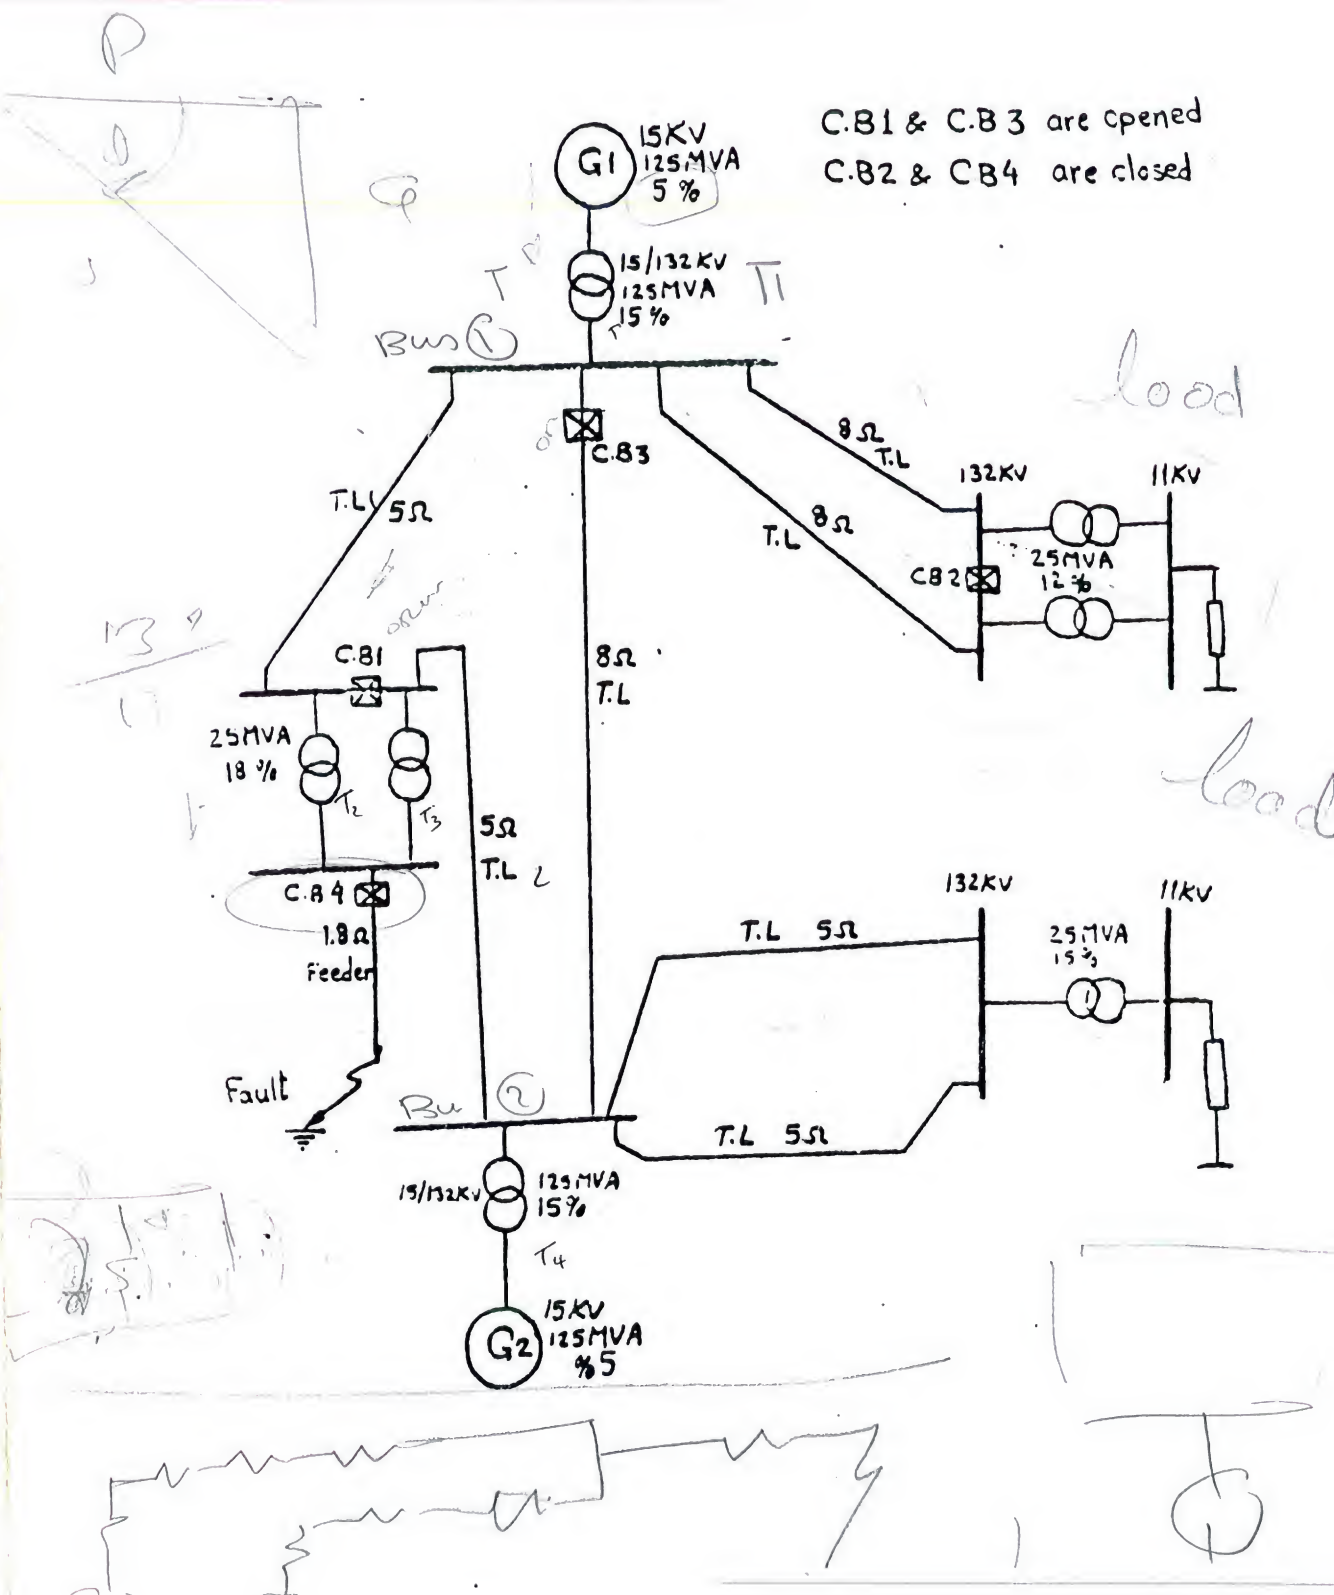 P
C.B1 & C.B3 are cpened
C.B2 & CB4 are closed
G1
15KV
125MVA
5 %
T
15/132KV
125MVA
15%
T1
Bus ①
load
C.B3
8Ω
T.L
8Ω
T.L
132KV
11KV
T.L1
5Ω
CB2
25MVA
12%
C.B1
8Ω
T.L
25MVA
18 %
T2
T3
load
5Ω
T.L 2
C.B4
1.8Ω
Feeder
132KV
11KV
T.L 5Ω
25MVA
15%
Fault
Bu ②
T.L 5Ω
15/132KV
125MVA
15%
T4
G2
15KV
125MVA
%5